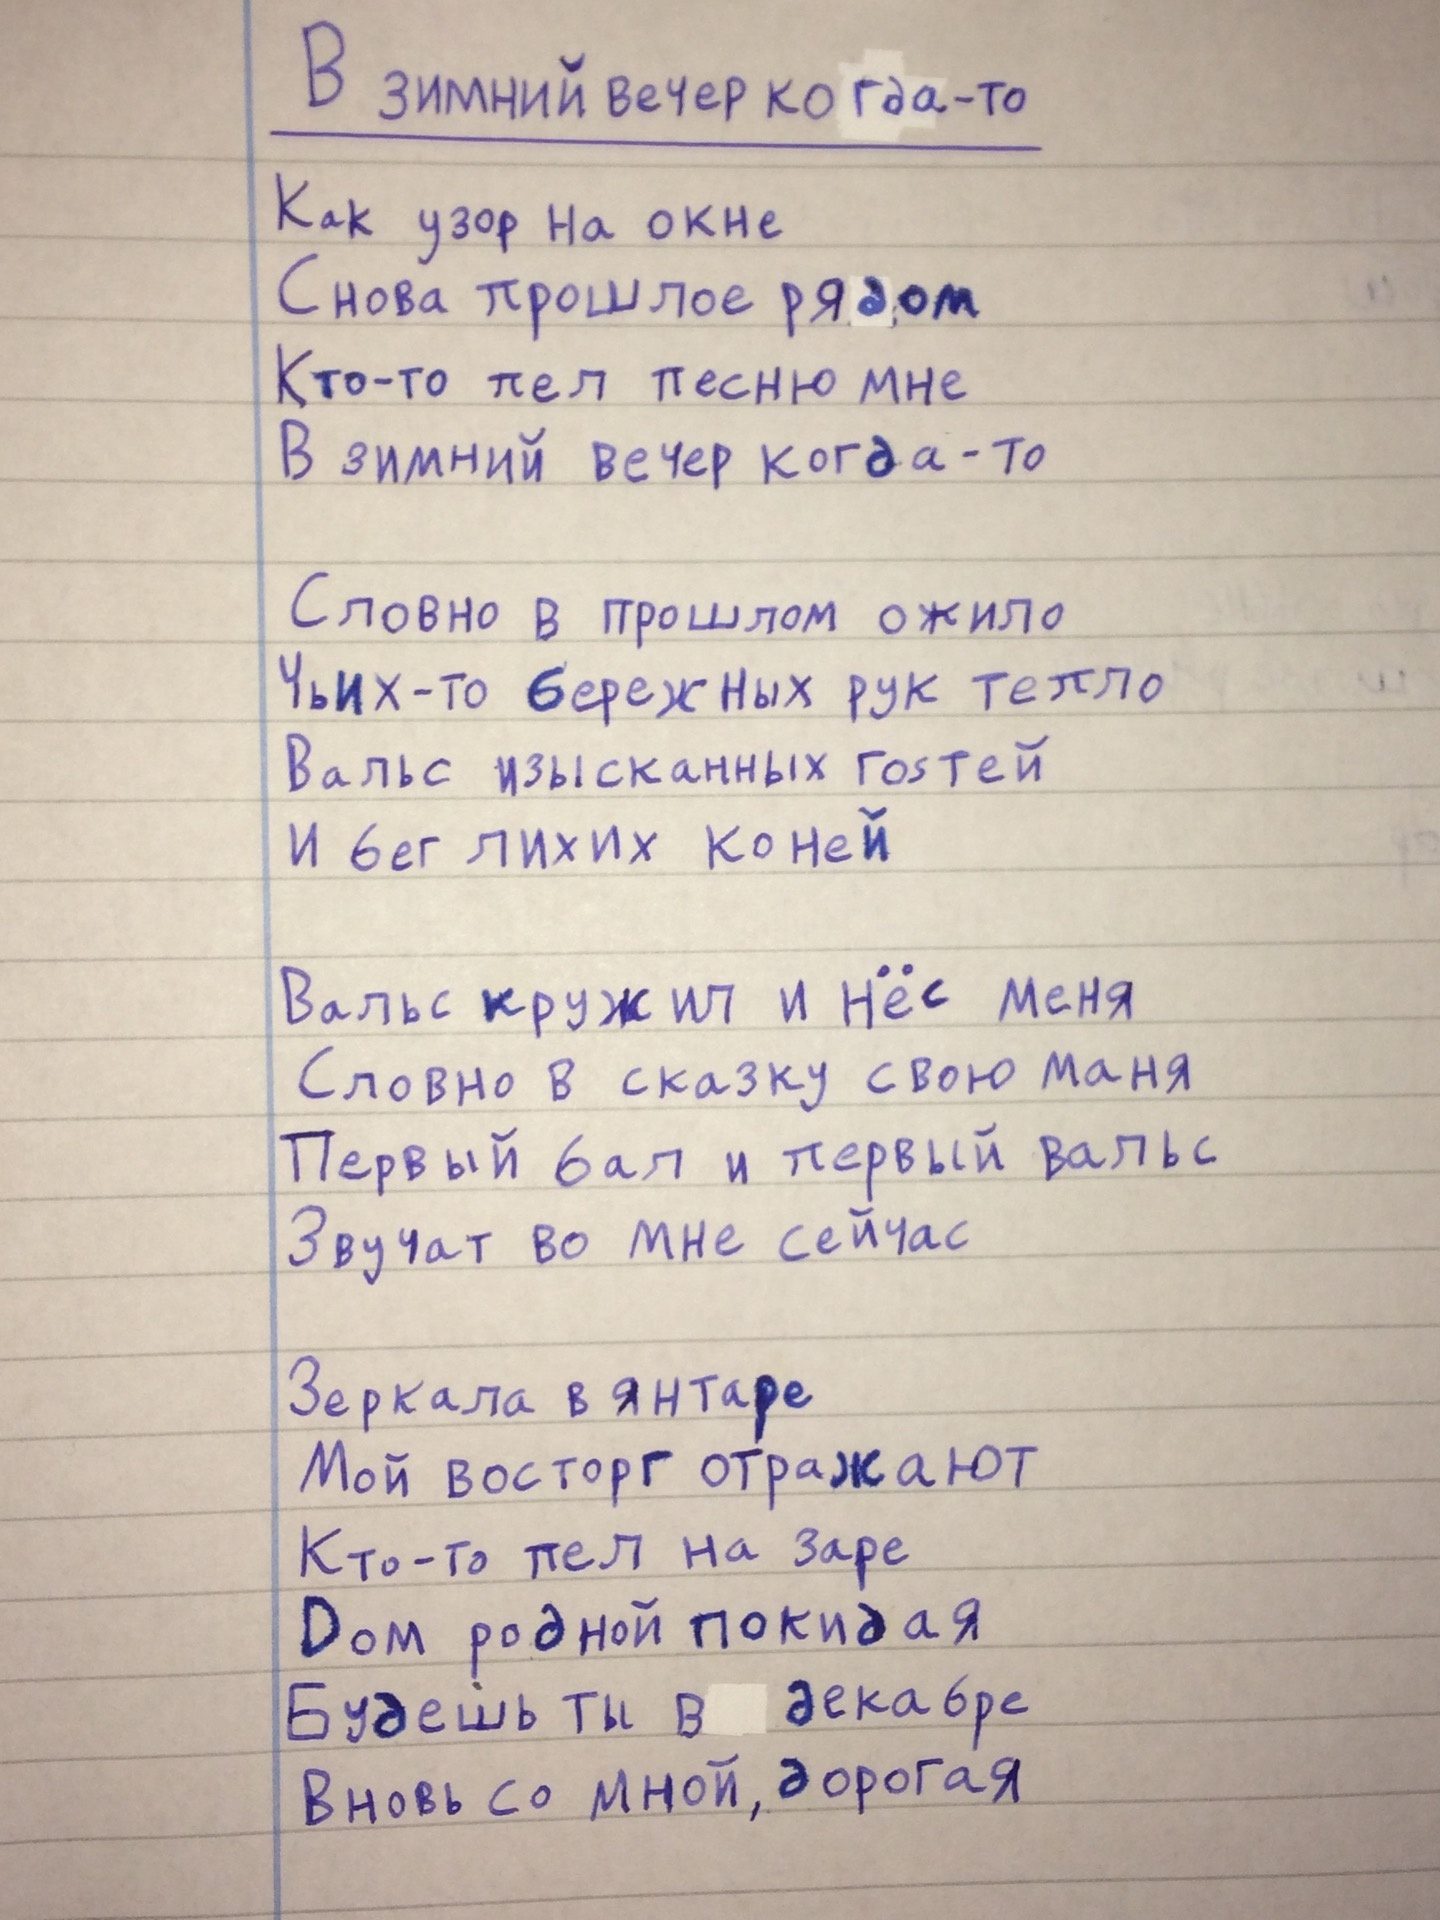 В зимний вечер когда-то
Как узор на окне
Снова прошлое рядом
Кто-то пел песню мне
В зимний вечер когда-то
Словно в прошлом ожило
Чьих-то бережных рук тепло
Вальс изысканных гоsтей
И бег лихих коней
Вальс кружил и нёс меня
Словно в сказку свою маня
Первый бал и первый вальс
Звучат во мне сейчас
Зеркала в янтаре
Мой восторг отражают
Кто-то пел на заре
Dом родной покидая
Будешь ты в декабре
Вновь со мной, дорогая